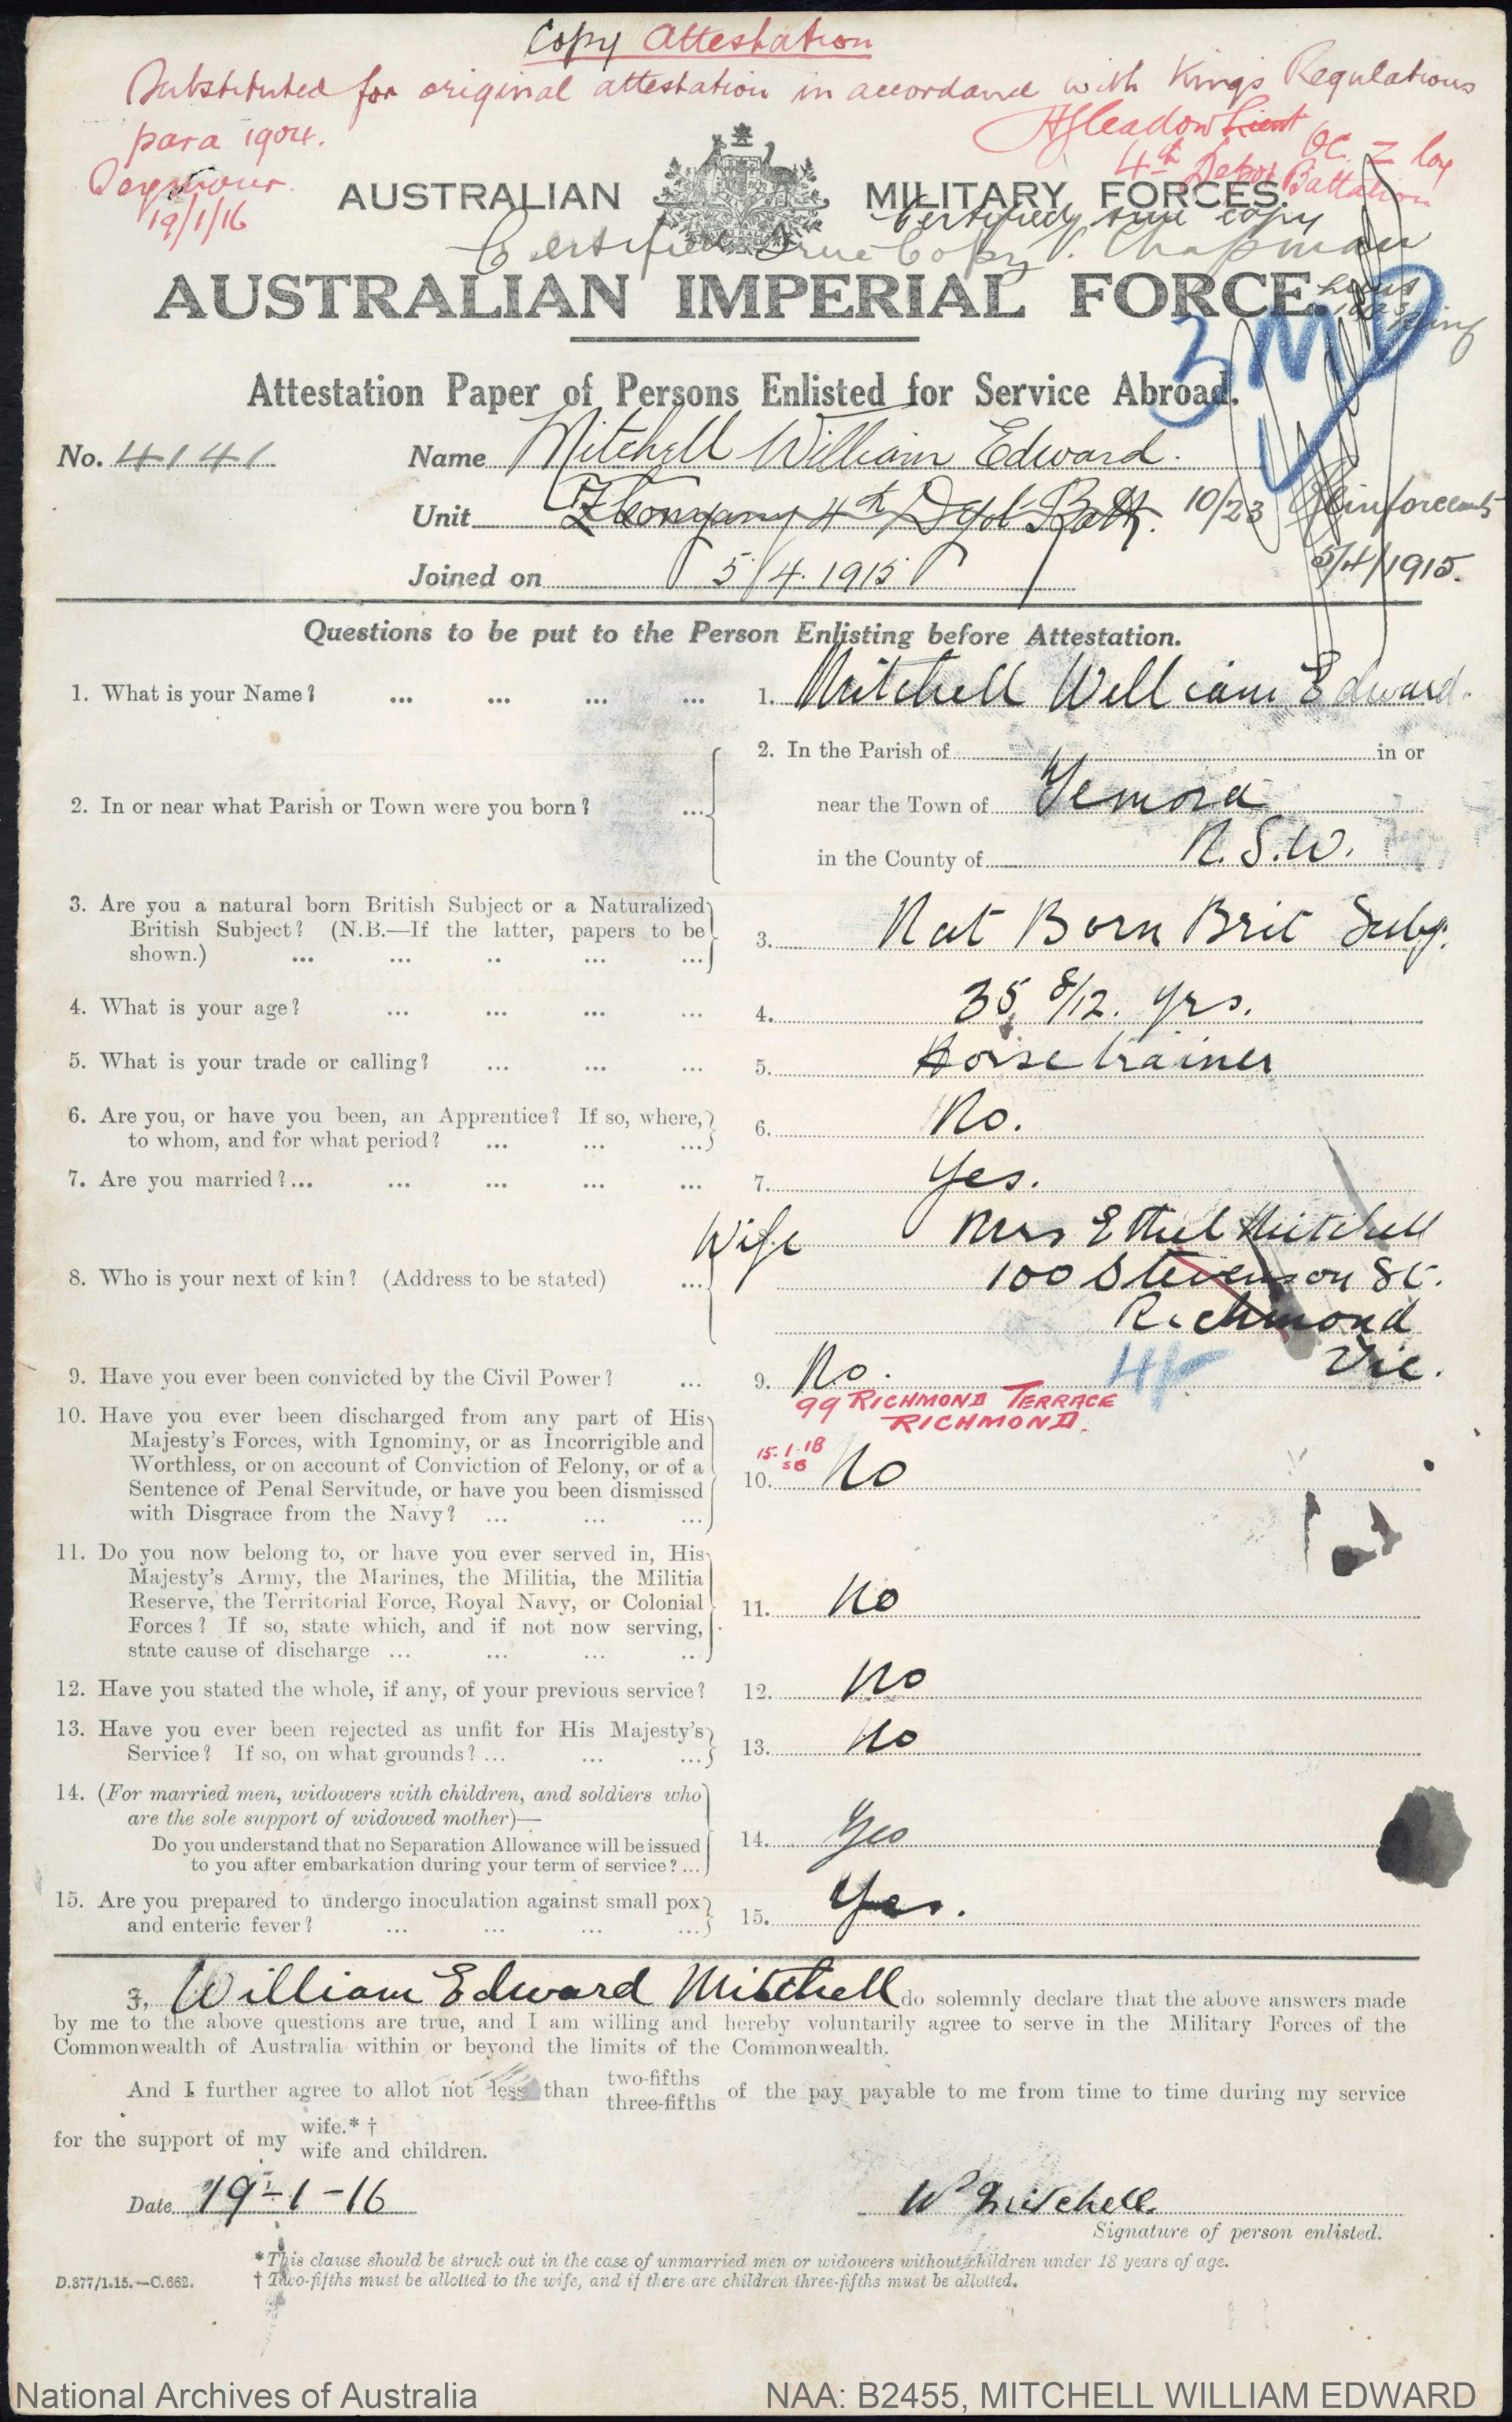 Copy Attestation
Substituted for original attestation in accordance with Kings Regulations
para 1904.
Lieut
OC. Z Coy
4th Depot Battalion
Seymour
19/1/16
AUSTRALIAN MILITARY FORCES.
Certified true copy
Certified True Copy Chapman
AUSTRALIAN IMPERIAL FORCE.
3 MD
Attestation Paper of Persons Enlisted for Service Abroad.
No. 4141 Name Mitchell William Edward.
Unit Z Company 4th Depot Batt. 10/23 Reinforcements
Joined on 5/4.1915 5/4/1915.
Questions to be put to the Person Enlisting before Attestation.
1. What is your Name? ... ... ... ... 1. Mitchell William Edward.
2. In the Parish of in or
2. In or near what Parish or Town were you born? ... near the Town of Temora
in the County of N.S.W.
3. Are you a natural born British Subject or a Naturalized
British Subject? (N.B.—If the latter, papers to be 3. Nat Born Brit Subj.
shown.) ... ... .. ... ...
4. What is your age? ... ... ... ... 4. 35 8/12. yrs.
5. What is your trade or calling? ... ... ... 5. Horse trainer
6. Are you, or have you been, an Apprentice? If so, where, 6. No.
to whom, and for what period? ... ... ...
7. Are you married?... ... ... ... ... 7. Yes.
Wife Mrs Ethel Mitchell
8. Who is your next of kin? (Address to be stated) ... 100 Stevenson St.
Richmond
Vic.
9. Have you ever been convicted by the Civil Power? ... 9. No.
99 RICHMOND TERRACE
RICHMOND.
15.1.18
10. Have you ever been discharged from any part of His
Majesty's Forces, with Ignominy, or as Incorrigible and
Worthless, or on account of Conviction of Felony, or of a
Sentence of Penal Servitude, or have you been dismissed 10. No
with Disgrace from the Navy? ... ... ...
11. Do you now belong to, or have you ever served in, His
Majesty's Army, the Marines, the Militia, the Militia
Reserve, the Territorial Force, Royal Navy, or Colonial 11. No
Forces? If so, state which, and if not now serving,
state cause of discharge ... ... ... ..
12. Have you stated the whole, if any, of your previous service? 12. No
13. Have you ever been rejected as unfit for His Majesty's
Service? If so, on what grounds? ... ... ... 13. No
14. (For married men, widowers with children, and soldiers who
are the sole support of widowed mother)—
Do you understand that no Separation Allowance will be issued 14. Yes
to you after embarkation during your term of service? ...
15. Are you prepared to undergo inoculation against small pox
and enteric fever? ... ... ... ... 15. Yes.
I, William Edward Mitchell do solemnly declare that the above answers made
by me to the above questions are true, and I am willing and hereby voluntarily agree to serve in the Military Forces of the
Commonwealth of Australia within or beyond the limits of the Commonwealth.
And I further agree to allot not less than two-fifths three-fifths of the pay payable to me from time to time during my service
for the support of my wife.* † wife and children.
Date 19-1-16 W Mitchell
Signature of person enlisted.
*This clause should be struck out in the case of unmarried men or widowers without children under 18 years of age.
D.377/1.15.—C.662. † Two-fifths must be allotted to the wife, and if there are children three-fifths must be allotted.
National Archives of Australia NAA: B2455, MITCHELL WILLIAM EDWARD